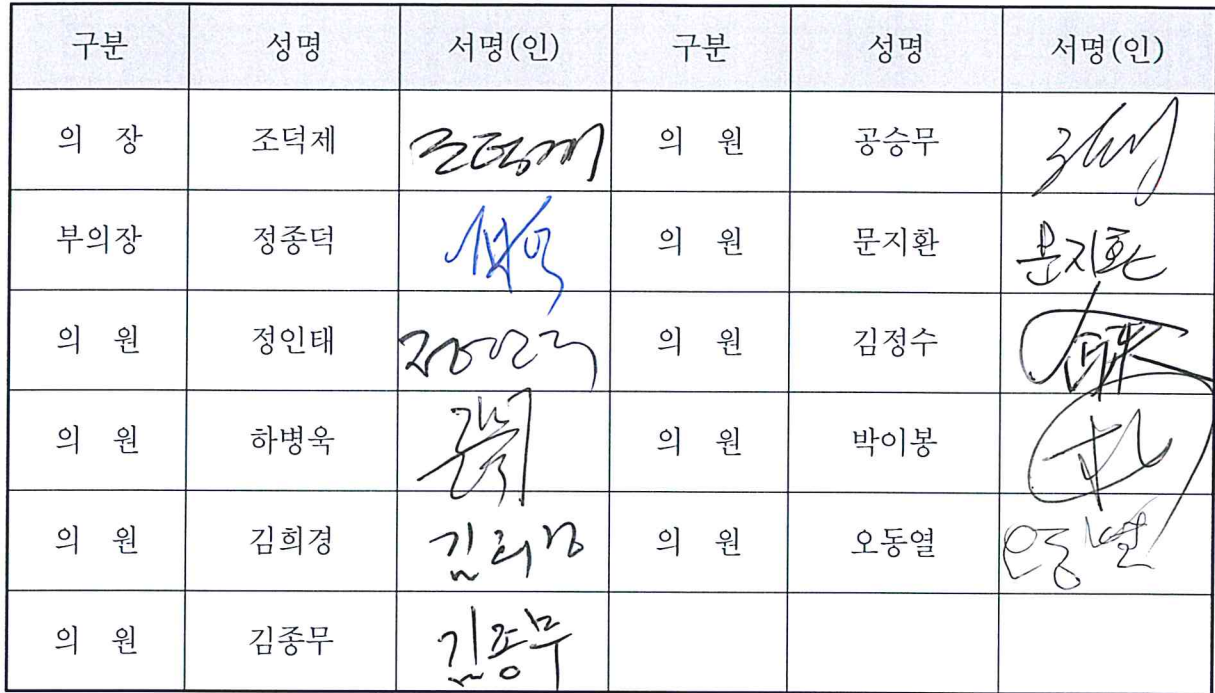 구분 성명 서명(인) 구분 성명 서명(인)
의 장 조덕제 조덕제 의 원 공승무
부의장 정종덕 의 원 문지환 문지환
의 원 정인태 의 원 김정수
의 원 하병욱 의 원 박이봉
의 원 김희경 김희경 의 원 오동열 오동열
의 원 김종무 김종무